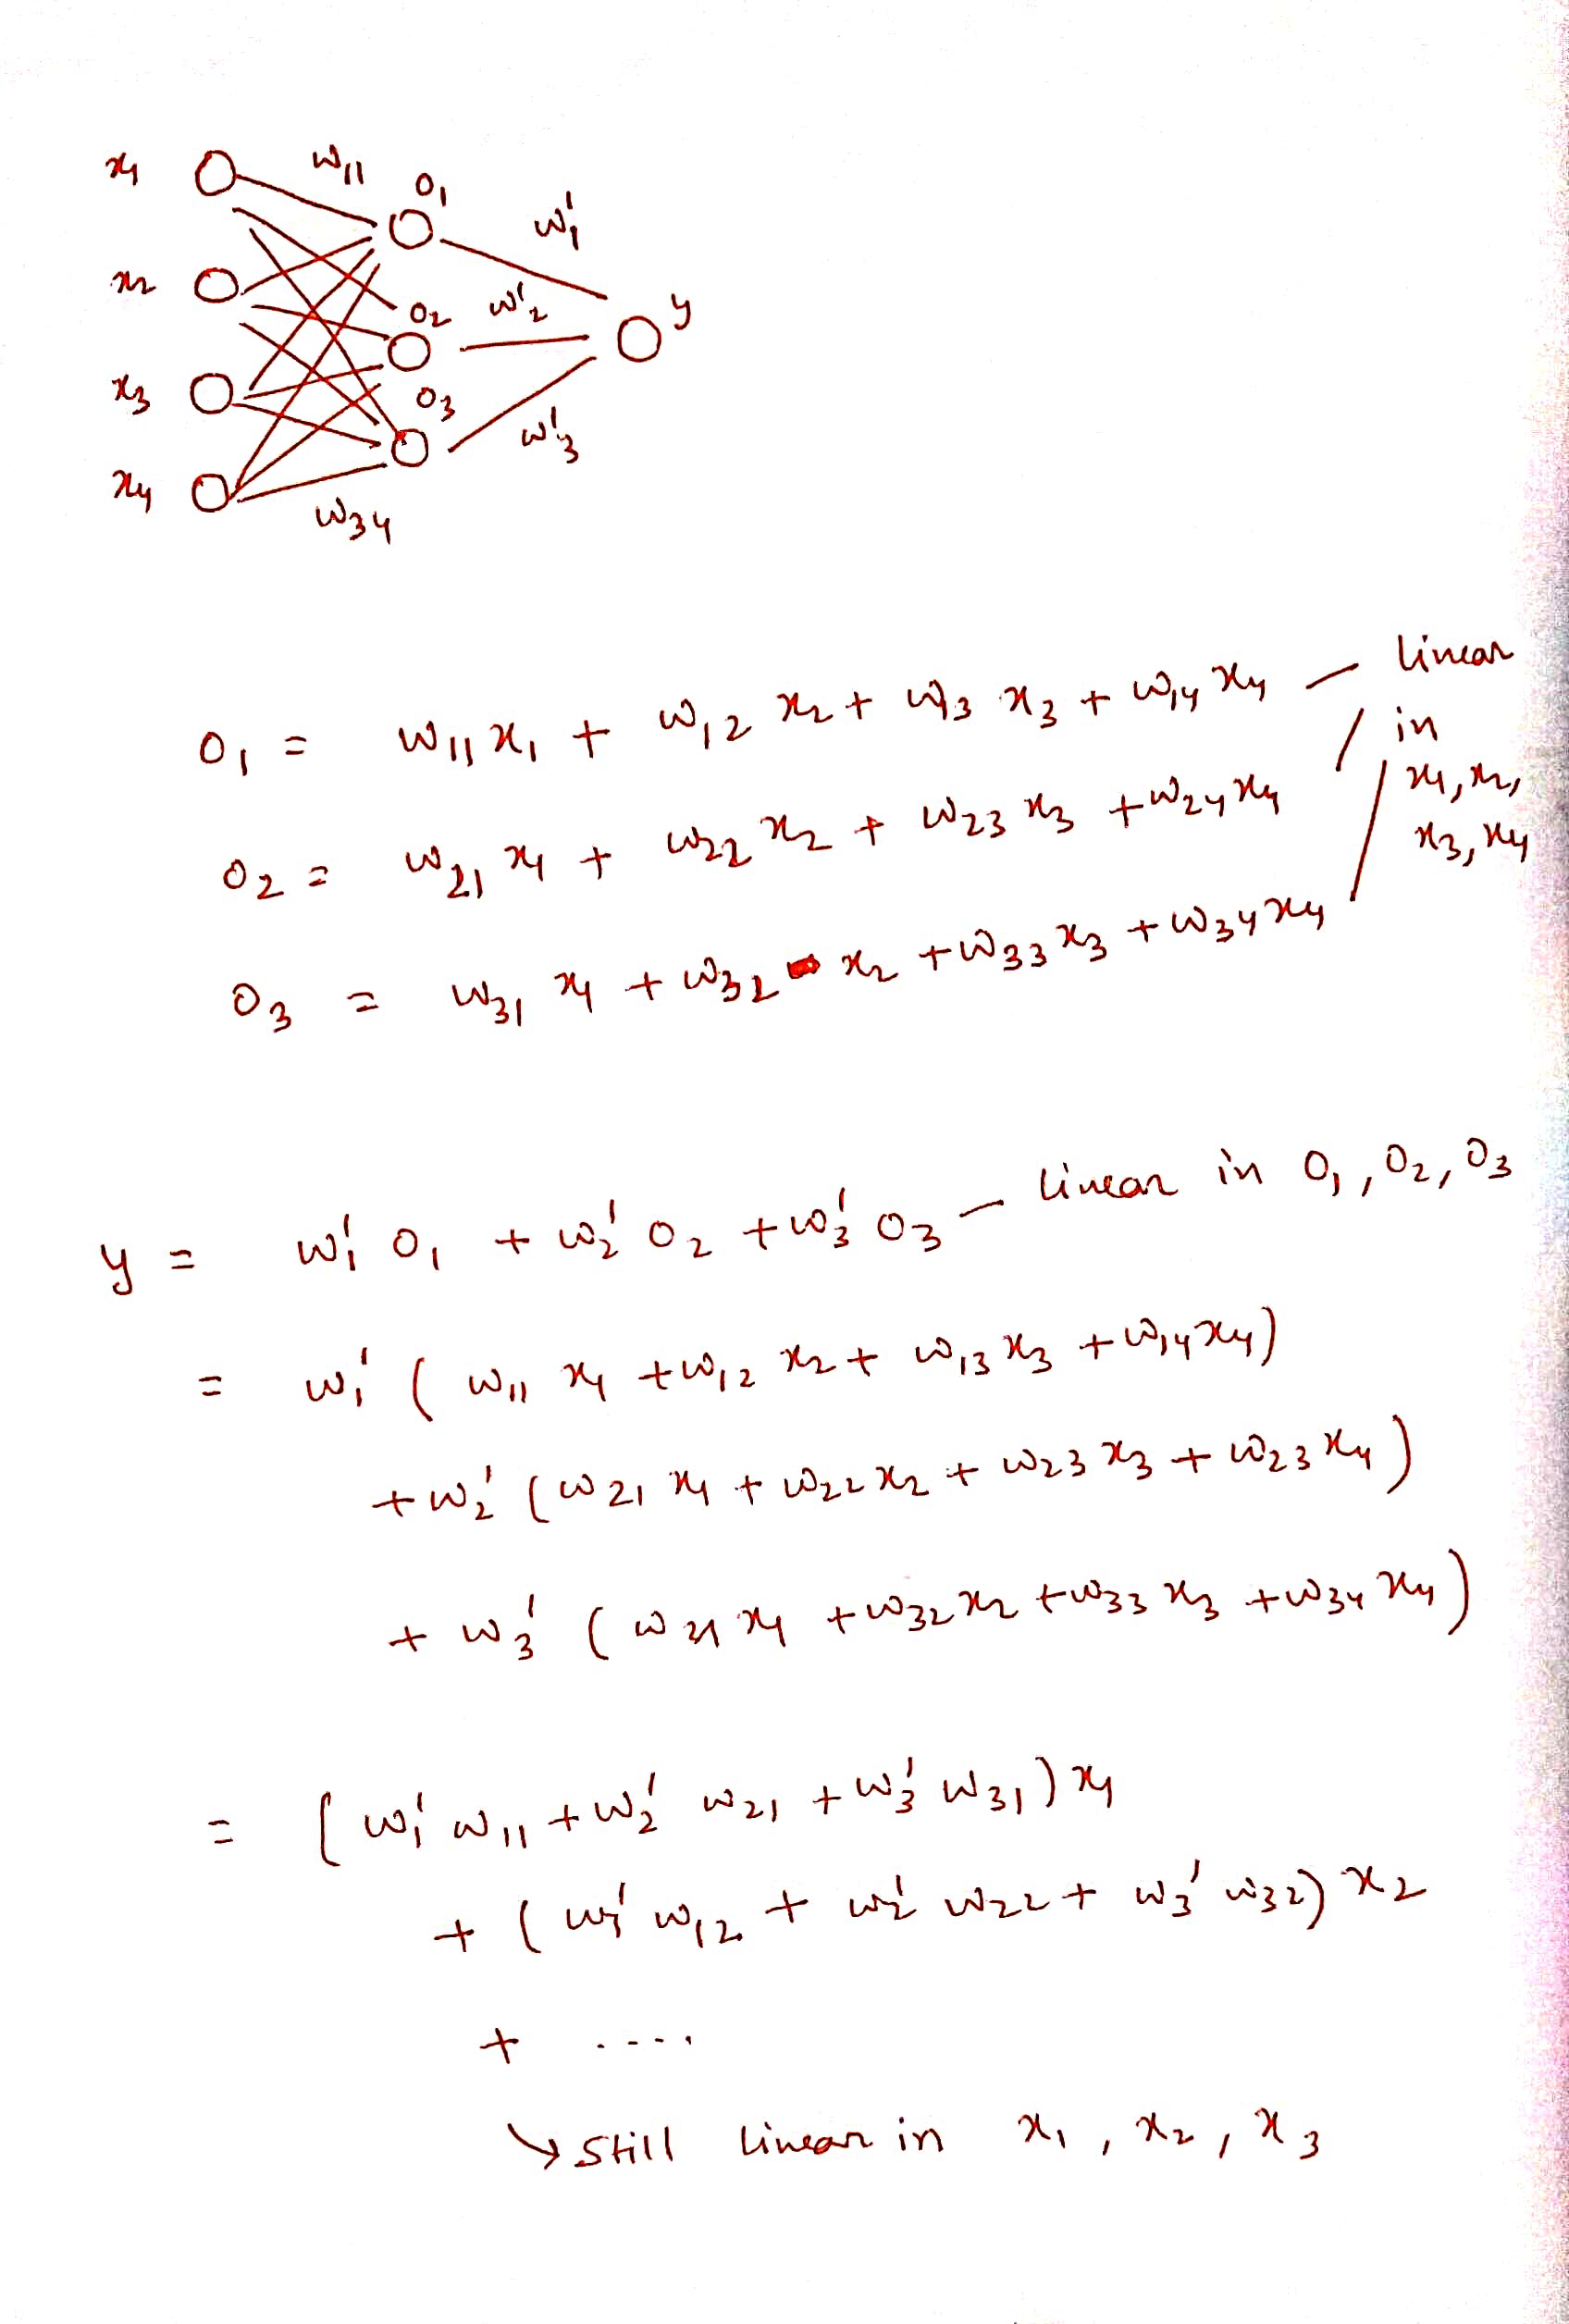 x₁ w₁₁ o₁ w₁'
x₂ o₂ w₂' y
x₃ o₃ w₃'
x₄ w₃₄
o₁ = w₁₁ x₁ + w₁₂ x₂ + w₁₃ x₃ + w₁₄ x₄ — linear
in
o₂ = w₂₁ x₁ + w₂₂ x₂ + w₂₃ x₃ + w₂₄ x₄ x₁, x₂,
x₃, x₄
o₃ = w₃₁ x₁ + w₃₂ x₂ + w₃₃ x₃ + w₃₄ x₄
y = w₁' o₁ + w₂' o₂ + w₃' o₃ — linear in o₁, o₂, o₃
= w₁' ( w₁₁ x₁ + w₁₂ x₂ + w₁₃ x₃ + w₁₄ x₄)
+ w₂' ( w₂₁ x₁ + w₂₂ x₂ + w₂₃ x₃ + w₂₃ x₄ )
+ w₃' ( w₃₁ x₁ + w₃₂ x₂ + w₃₃ x₃ + w₃₄ x₄ )
= ( w₁' w₁₁ + w₂' w₂₁ + w₃' w₃₁ ) x₁
+ ( w₁' w₁₂ + w₂' w₂₂ + w₃' w₃₂) x₂
+ ....
↳ still linear in x₁ , x₂ , x₃